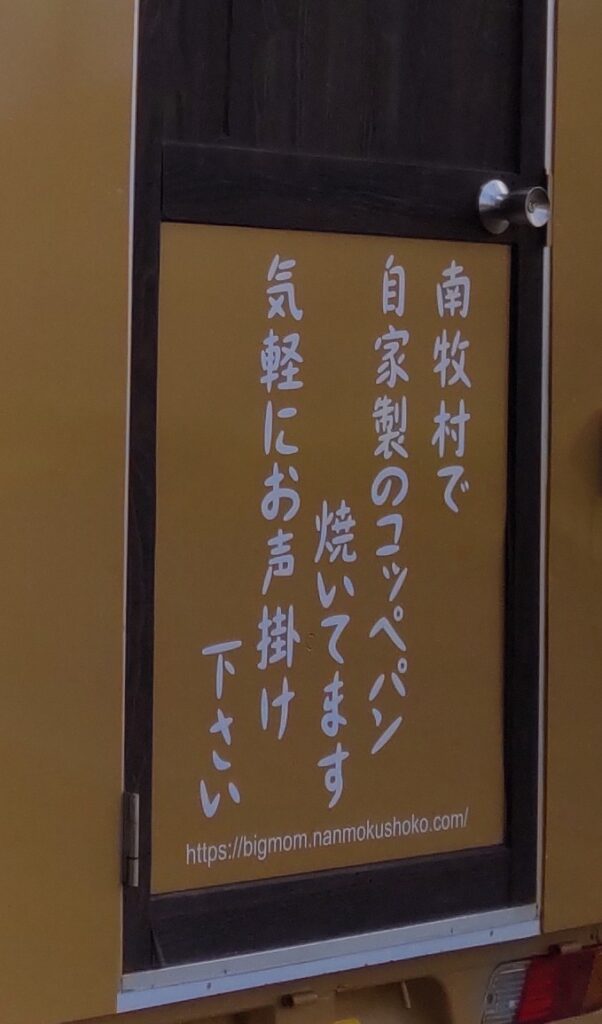 南牧村で
自家製のコッペパン
焼いてます
気軽にお声掛け
下さい
https://bigmom.nanmokushoko.com/